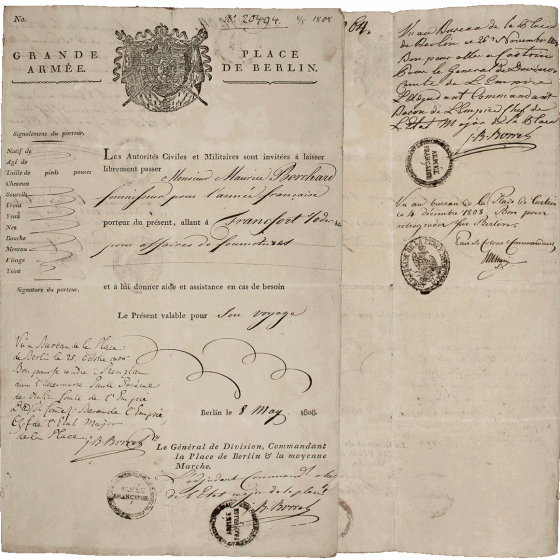 No.
No. 20494.
1808
GRANDE
ARMÉE.
PLACE
DE BERLIN.
Signalement du porteur.
Natif de
Agé de
Taille de pieds pouces
Cheveux
Sourcils
Front
Yeux
Nez
Bouche
Menton
Visage
Teint
Signature du porteur.
LES Autorités Civiles et Militaires sont invitées à laisser
librement passer
Monsieur Maurice
fournisseur pour l'armée française
porteur du présent, allant à Francfort
pour affaires de fournitures
et à lui donner aide et assistance en cas de besoin
Le Présent valable pour son voyage
Vu au Bureau de la Place
de Berlin le 25 Octobre
Bon pour se rendre
Comte de l'Empire
Chef de l'Etat Major
de la Place
J. B. Borrel
Berlin le 8 May 1808.
Le Général de Division, Commandant
la Place de Berlin & la moyenne
Marche.
L'adjudant Command chef
de l'Etat major de la place
J. B. Borrel
64.
Vu au Bureau de la Place
de Berlin le 26 Novembre
Bon pour aller a Custrin
Pour le General de Division
Comte de L'Empire
L'adjudant Commandant
Baron de L'Empire Chef de
L'Etat Major de la Place
J. B. Borrel
ARMÉE
FRANÇAISE
Vu au bureau de la Place de Custrin
le 4 décembre 1808. Bon pour
retrograder sur Berlin.